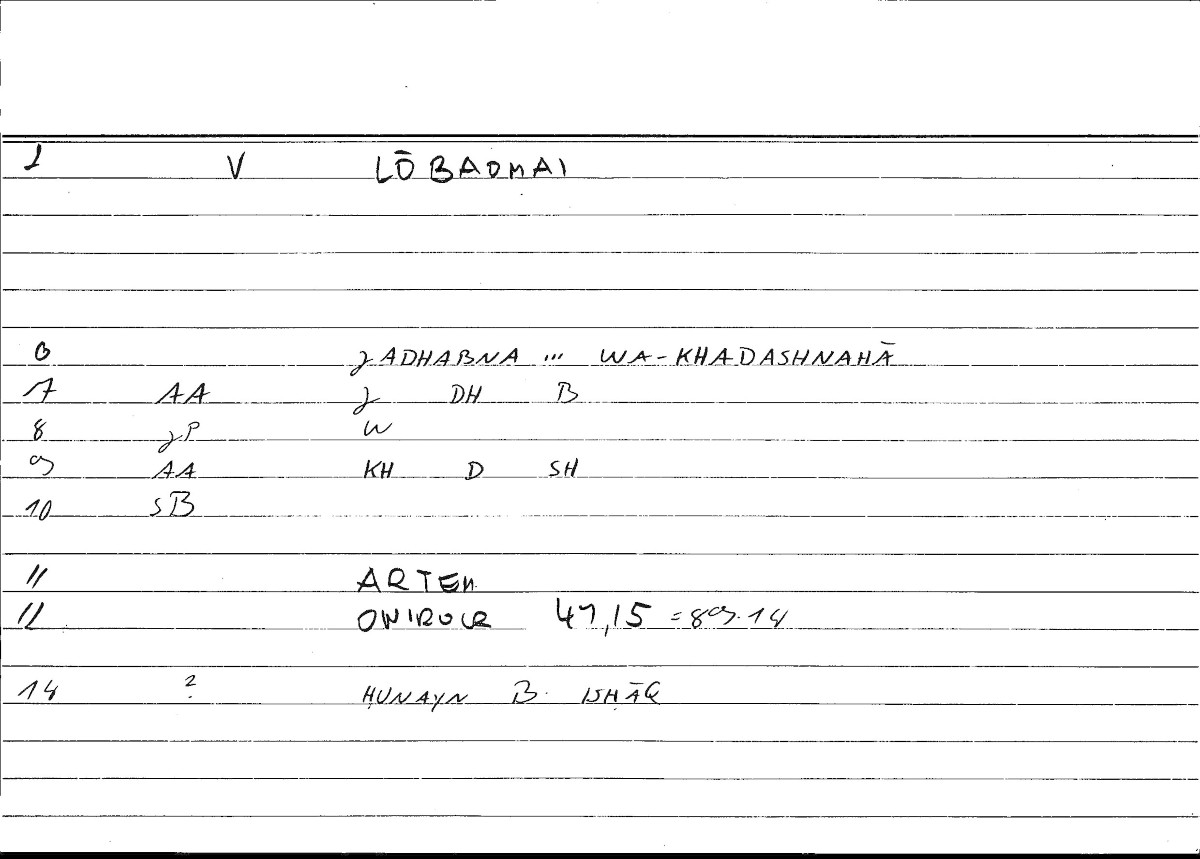 1 V LŌBAOMAI
6 JADHABNA ... WA-KHADASHNAHĀ
7 AA J DH B
8 JP W
9 AA KH D SH
10 SB
11 ARTEM
12 ONIROCR 47,15 = 89.14
14 ? ḤUNAYN B. ISḤĀQ